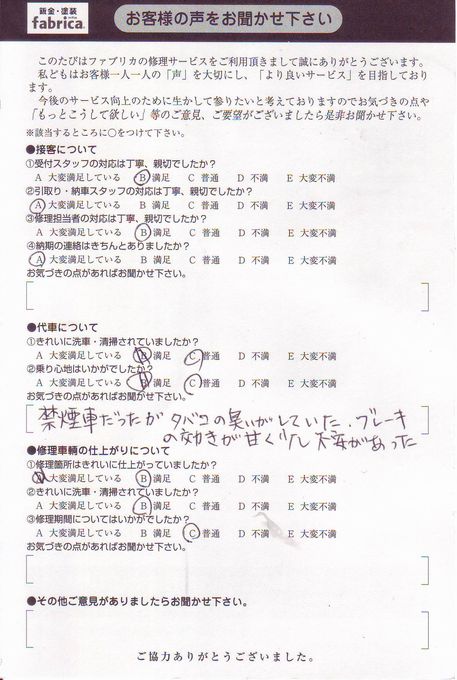 鈑金・塗装
fabrica
お客様の声をお聞かせ下さい
このたびはファブリカの修理サービスをご利用頂きまして誠にありがとうございます。
私どもはお客様一人一人の「声」を大切にし、「より良いサービス」を目指しており
ます。
今後のサービス向上のために生かして参りたいと考えておりますのでお気づきの点や
「もっとこうして欲しい」等のご意見、ご要望がございましたら是非お聞かせ下さい。
※該当するところに○をつけて下さい。
●接客について
①受付スタッフの対応は丁寧、親切でしたか?
A 大変満足している B 満足 C 普通 D 不満 E 大変不満
②引取り・納車スタッフの対応は丁寧、親切でしたか?
A 大変満足している B 満足 C 普通 D 不満 E 大変不満
③修理担当者の対応は丁寧、親切でしたか?
A 大変満足している B 満足 C 普通 D 不満 E 大変不満
④納期の連絡はきちんとありましたか?
A 大変満足している B 満足 C 普通 D 不満 E 大変不満
お気づきの点があればお聞かせ下さい。
●代車について
①きれいに洗車・清掃されていましたか?
A 大変満足している B 満足 C 普通 D 不満 E 大変不満
②乗り心地はいかがでしたか?
A 大変満足している B 満足 C 普通 D 不満 E 大変不満
お気づきの点があればお聞かせ下さい。
禁煙車だったが タバコの臭いがしていた。ブレーキ
の効きが甘く少し不安があった
●修理車輌の仕上がりについて
①修理箇所はきれいに仕上がっていましたか?
A 大変満足している B 満足 C 普通 D 不満 E 大変不満
②きれいに洗車・清掃されていましたか?
A 大変満足している B 満足 C 普通 D 不満 E 大変不満
③修理期間についてはいかがでしたか?
A 大変満足している B 満足 C 普通 D 不満 E 大変不満
お気づきの点があればお聞かせ下さい。
●その他ご意見がありましたらお聞かせ下さい。
ご協力ありがとうございました。